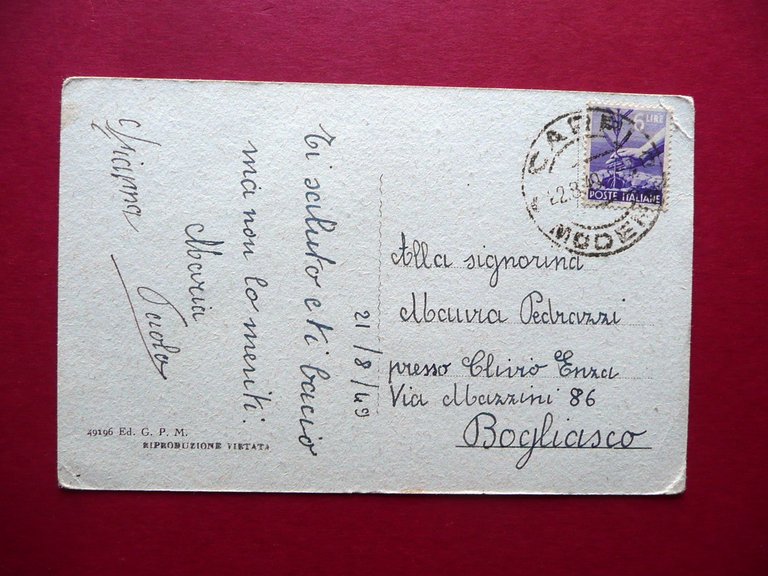 Ti saluto e ti bacio
ma non lo meriti.
Maria
Paolo
21/8/49
6 LIRE
POSTE ITALIANE
CARPI
MODENA
Alla signorina
Maura Pedrazzi
presso Clivio Enza
Via Mazzini 86
Bogliasco
49196 Ed. G. P. M.
RIPRODUZIONE VIETATA